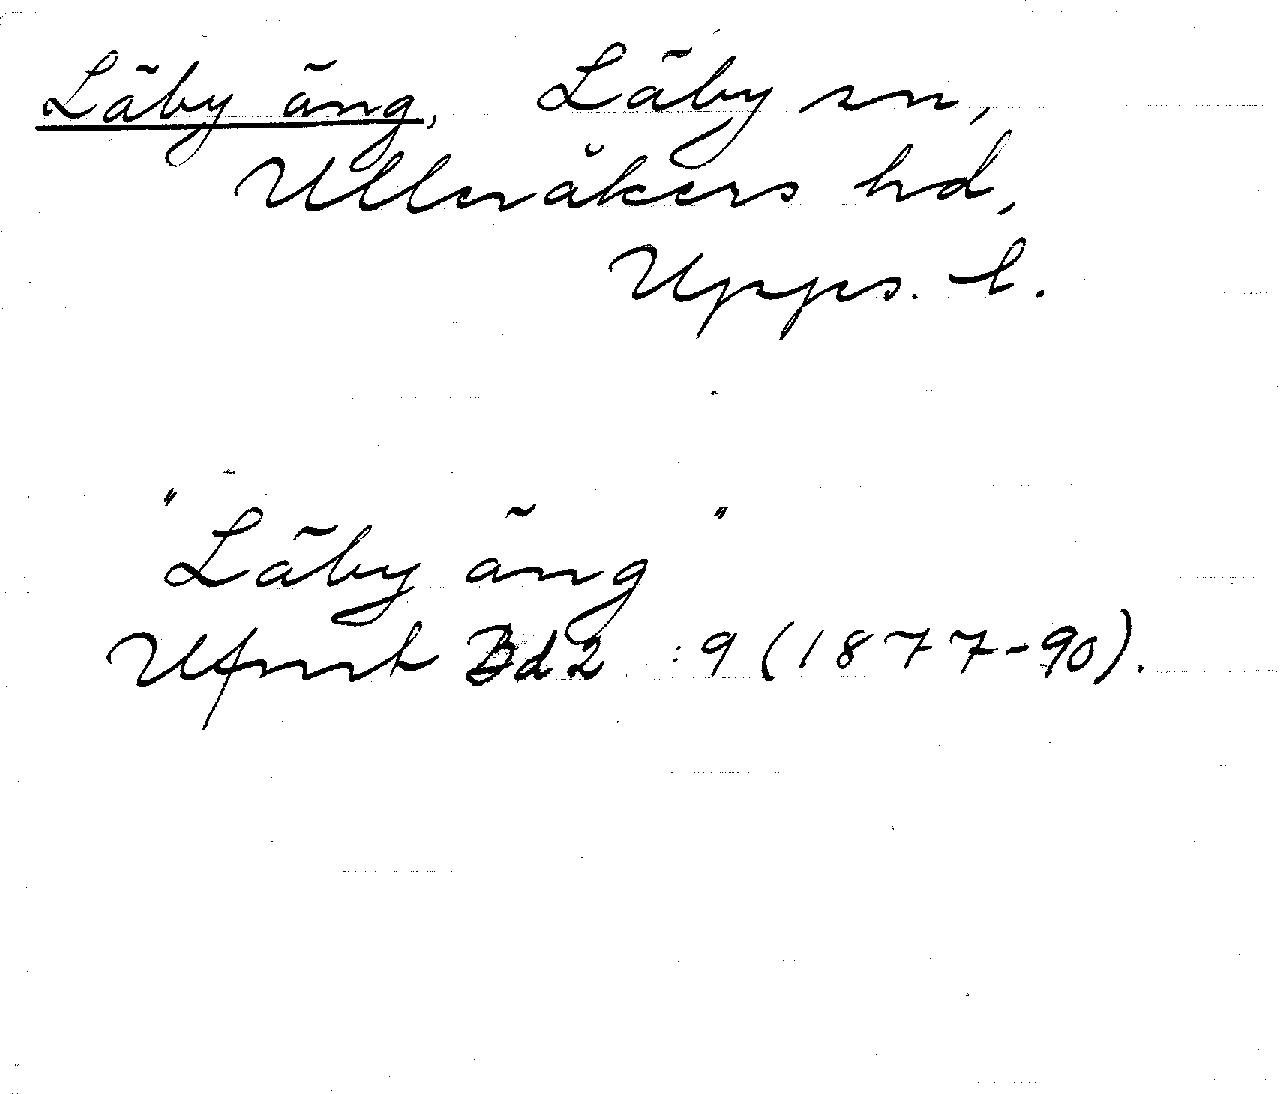 Läby äng, Läby sn,
Ulleråkers hd,
Upps. l.
"Läby äng"
Ufmt Bd 2 :9 (1877-90).